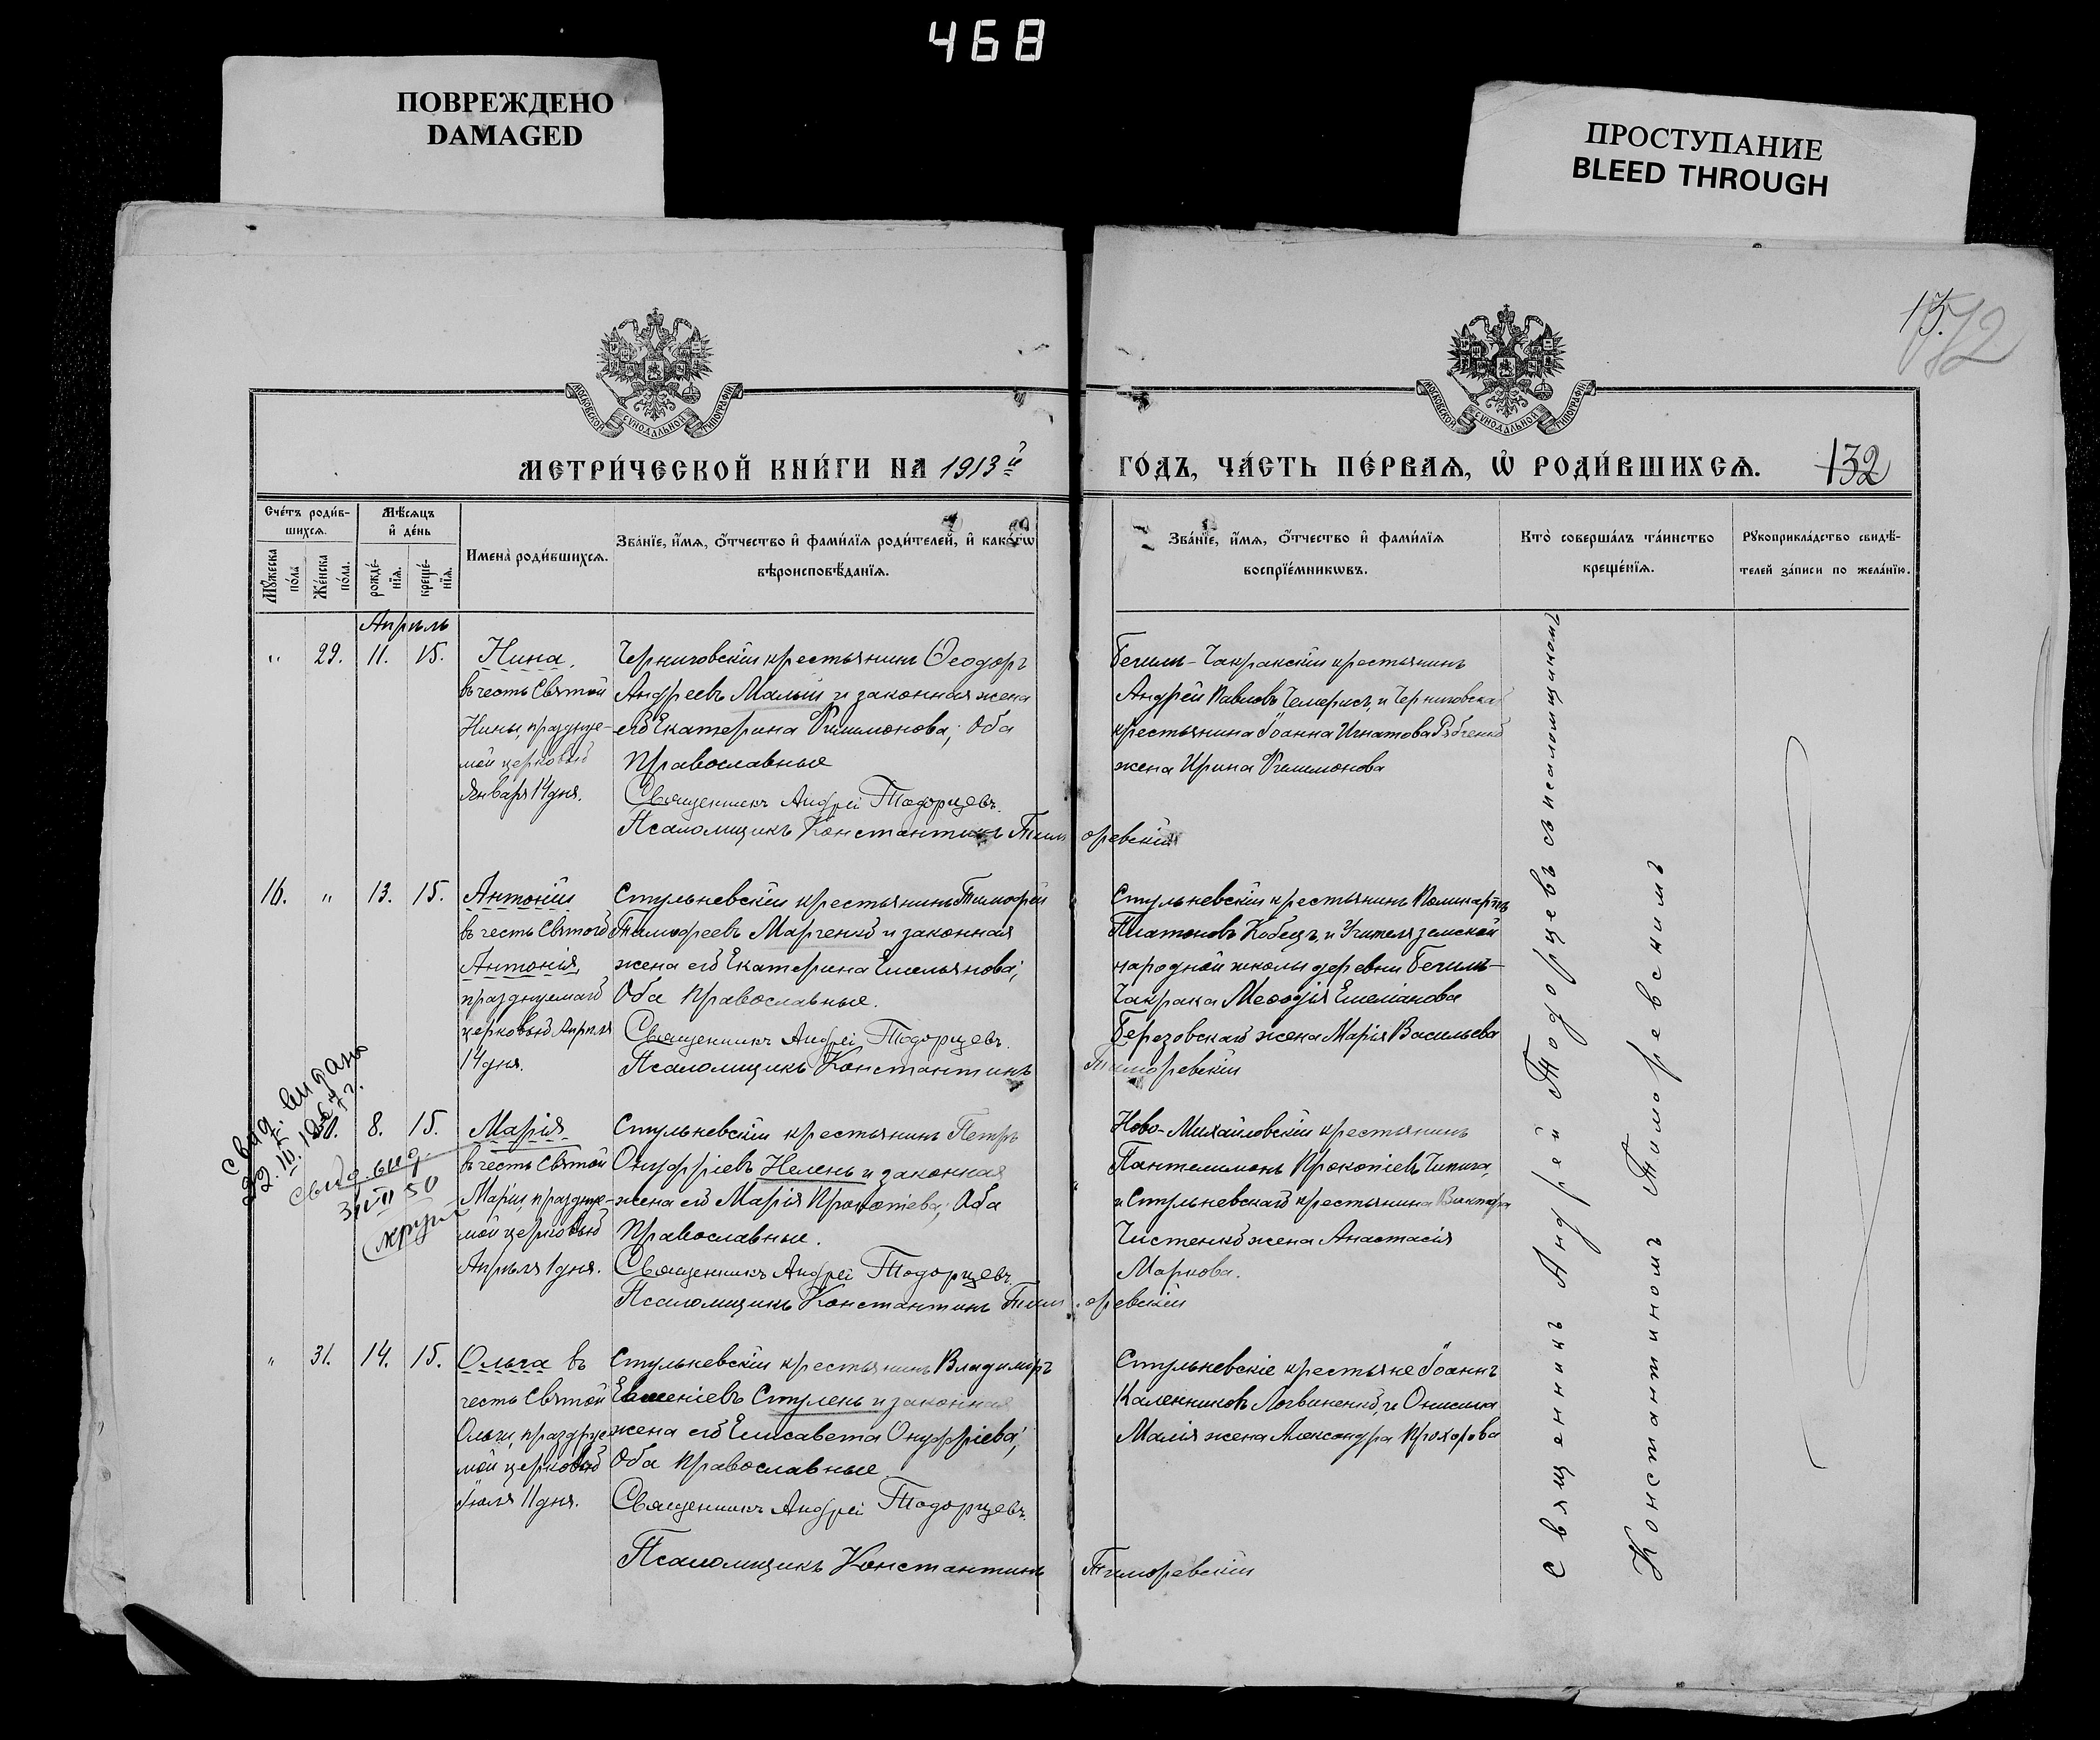 468
ПОВРЕЖДЕНО
DAMAGED
ПРОСТУПАНИЕ
BLEED THROUGH
15.
132
МОСКОВСКОЙ СѴНОДАЛЬНОЙ ТИПОГРАФІИ
МОСКОВСКОЙ СѴНОДАЛЬНОЙ ТИПОГРАФІИ
МЕТРИ́ЧЕСКОЙ КНИ́ГИ НА 1913й
ГО́ДЪ, ЧА́СТЬ ПЕ́РВАѦ, Ѡ҆ РОДИ́ВШИХСѦ.
132
Сче́тъ роди́в-
шихсѧ.
Мꙋ́жеска по́ла
Же́нска по́ла.
Мѣ́сѧцъ
и҆ де́нь
рожде́-
нїѧ.
креще́-
нїѧ.
Имена̀ роди́вшихсѧ.
Зва́нїе, и҆́мѧ, ѻ҆́тчество и҆ фами́лїѧ роди́телей, и҆ како́гѡ
вѣроисповѣ́данїѧ.
Зва́нїе, и҆́мѧ, ѻ҆́тчество и҆ фами́лїѧ
воспрїе́мникѡвъ.
Кто̀ соверша́лъ та́инство
креще́нїѧ.
Рꙋкоприкла́дство свидѣ́-
телей за́писи по жела́нїю.
Апрѣль
" 29. 11. 15.
Нина,
въ честь Святой
Нины, праздуе-
мой церковью
Января 14 дня.
Черниговскій крестьянинъ Ѳеодоръ
Андреевъ Малый и законная жена
его Екатерина Филимонова; Оба
Православные
Священникъ Андрей Тодорцевъ.
Псаломщикъ Константинъ Тиморевскій
Бегимъ-Чакракскій крестьянинъ
Андрей Павловъ Чемерисъ, и Черниговска
крестьянина Іоанна Игнатова Рябченко
жена Ирина Филимонова
16. " 13. 15.
Антоній
въ честь Святого
Антонія,
празднуемаго
церковью Апрѣля
14 дня.
Стульневскій крестьянинъ Тимофей
Тимофеевъ Марченко и законная
жена его Екатерина Емельянова;
Оба Православные.
Священникъ Андрей Тодорцевъ.
Псаломщикъ Константинъ Тиморевскій
Стульневскій крестьянинъ Поликарпъ
Платоновъ Кобецъ, и Учителя земской
народной школы деревни Бегимъ-
Чакрака Меѳодія Емеліанова
Березовскаго жена Марія Васильева
Свид. выдано
22. IV. 1967 г.
Свид. выд.
30. 8. 15.
Марія
въ честь Святой
Маріи, праздуе-
мой церковью
Апрѣля 1 дня.
Стульневскій крестьянинъ Петръ
Онуфріевъ Нелень и законная
жена его Марія Прокопіева; Оба
Православные.
Священникъ Андрей Тодорцевъ.
Псаломщикъ Константинъ Тиморевскій
Ново-Михайловскій крестьянинъ
Пантелимонъ Прокопіевъ Чипига,
и Стульневскаго крестьянина Виктора
Чистенко жена Анастасія
Маркова.
" 31. 14. 15.
Ольга въ
честь Святой
Ольги, праздуе
мой церковью
Іюля 11 дня.
Стульневскій крестьянинъ Владиміръ
Евгеніевъ Стулень и законная
жена его Елисавета Онуфріева;
Оба Православные
Священникъ Андрей Тодорцевъ.
Псаломщикъ Константинъ Тиморевскій
Стульневскіе крестьяне Іоаннъ
Каленниковъ Логвиненко, и Онисима
Малія жена Александра Прохорова
Священникъ Андрей Тодорцевъ съ псаломщикомъ
Константиномъ Тиморевскимъ